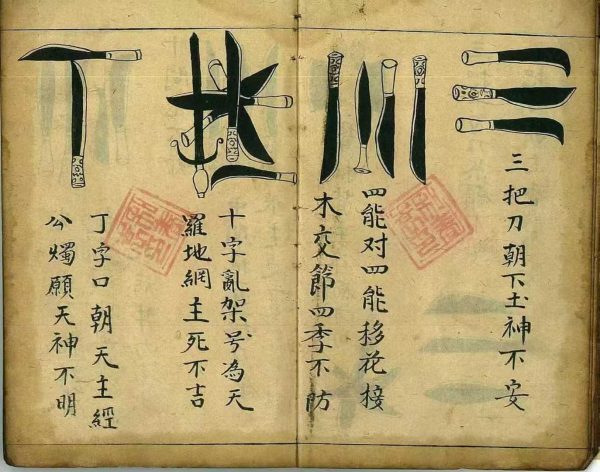 三把刀朝下土神不安
四能对四能移花接
木交節四季不防
十字亂架号為天
羅地網主死不吉
丁字口朝天主經
公燭願天神不明